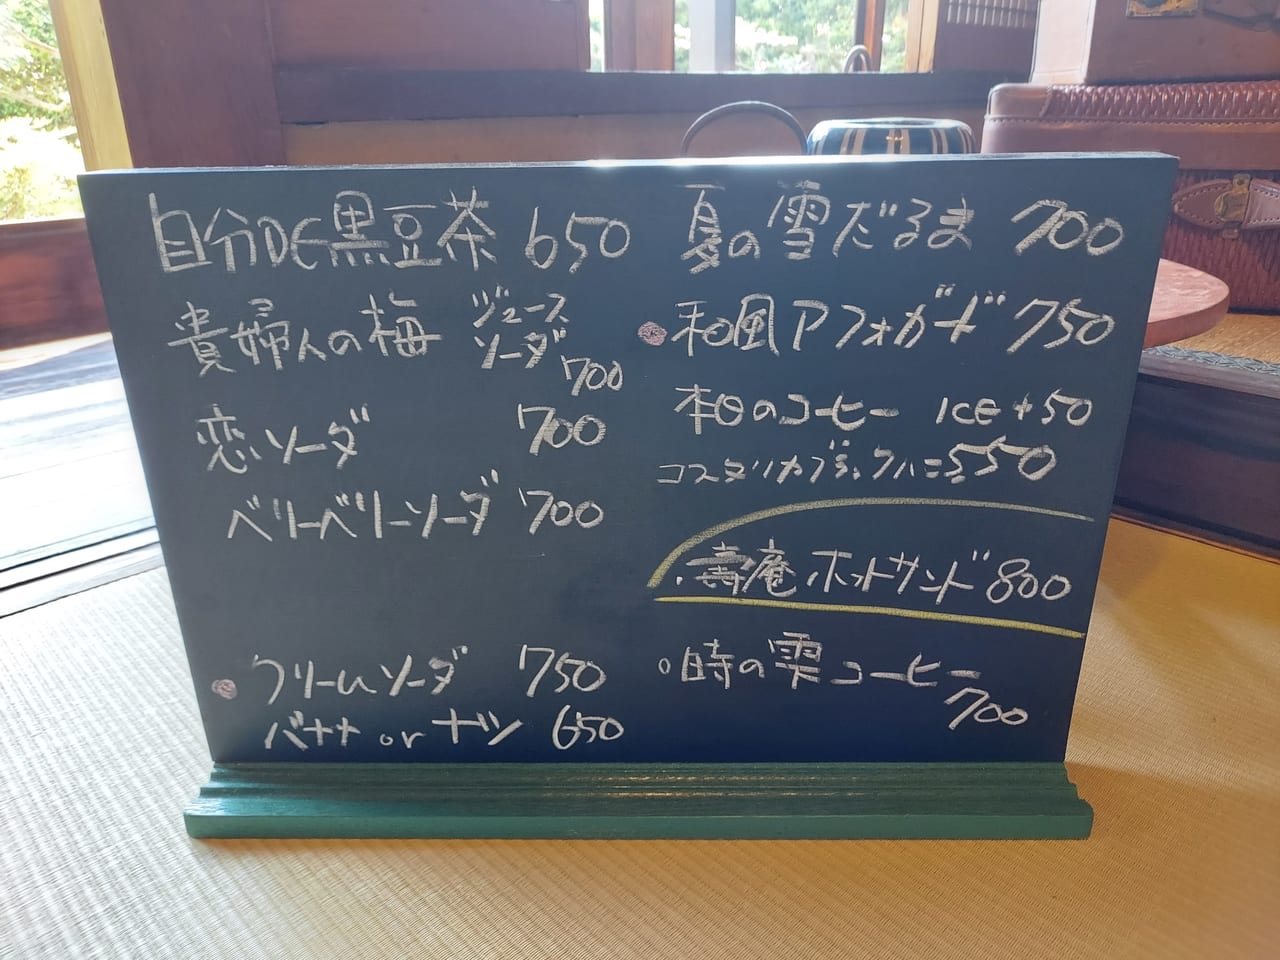 自分DE黒豆茶 650
貴婦人の梅 ジュース
ソーダ
700
恋ソーダ 700
ベリーベリーソーダ 700
クリームソーダ 750
バナナ or ナツ 650
夏の雪だるま 700
和風アフォガード 750
本日のコーヒー ICE+50
コスタリカブラックハニー 550
・壽庵ホットサンド 800
時の雫コーヒー
700